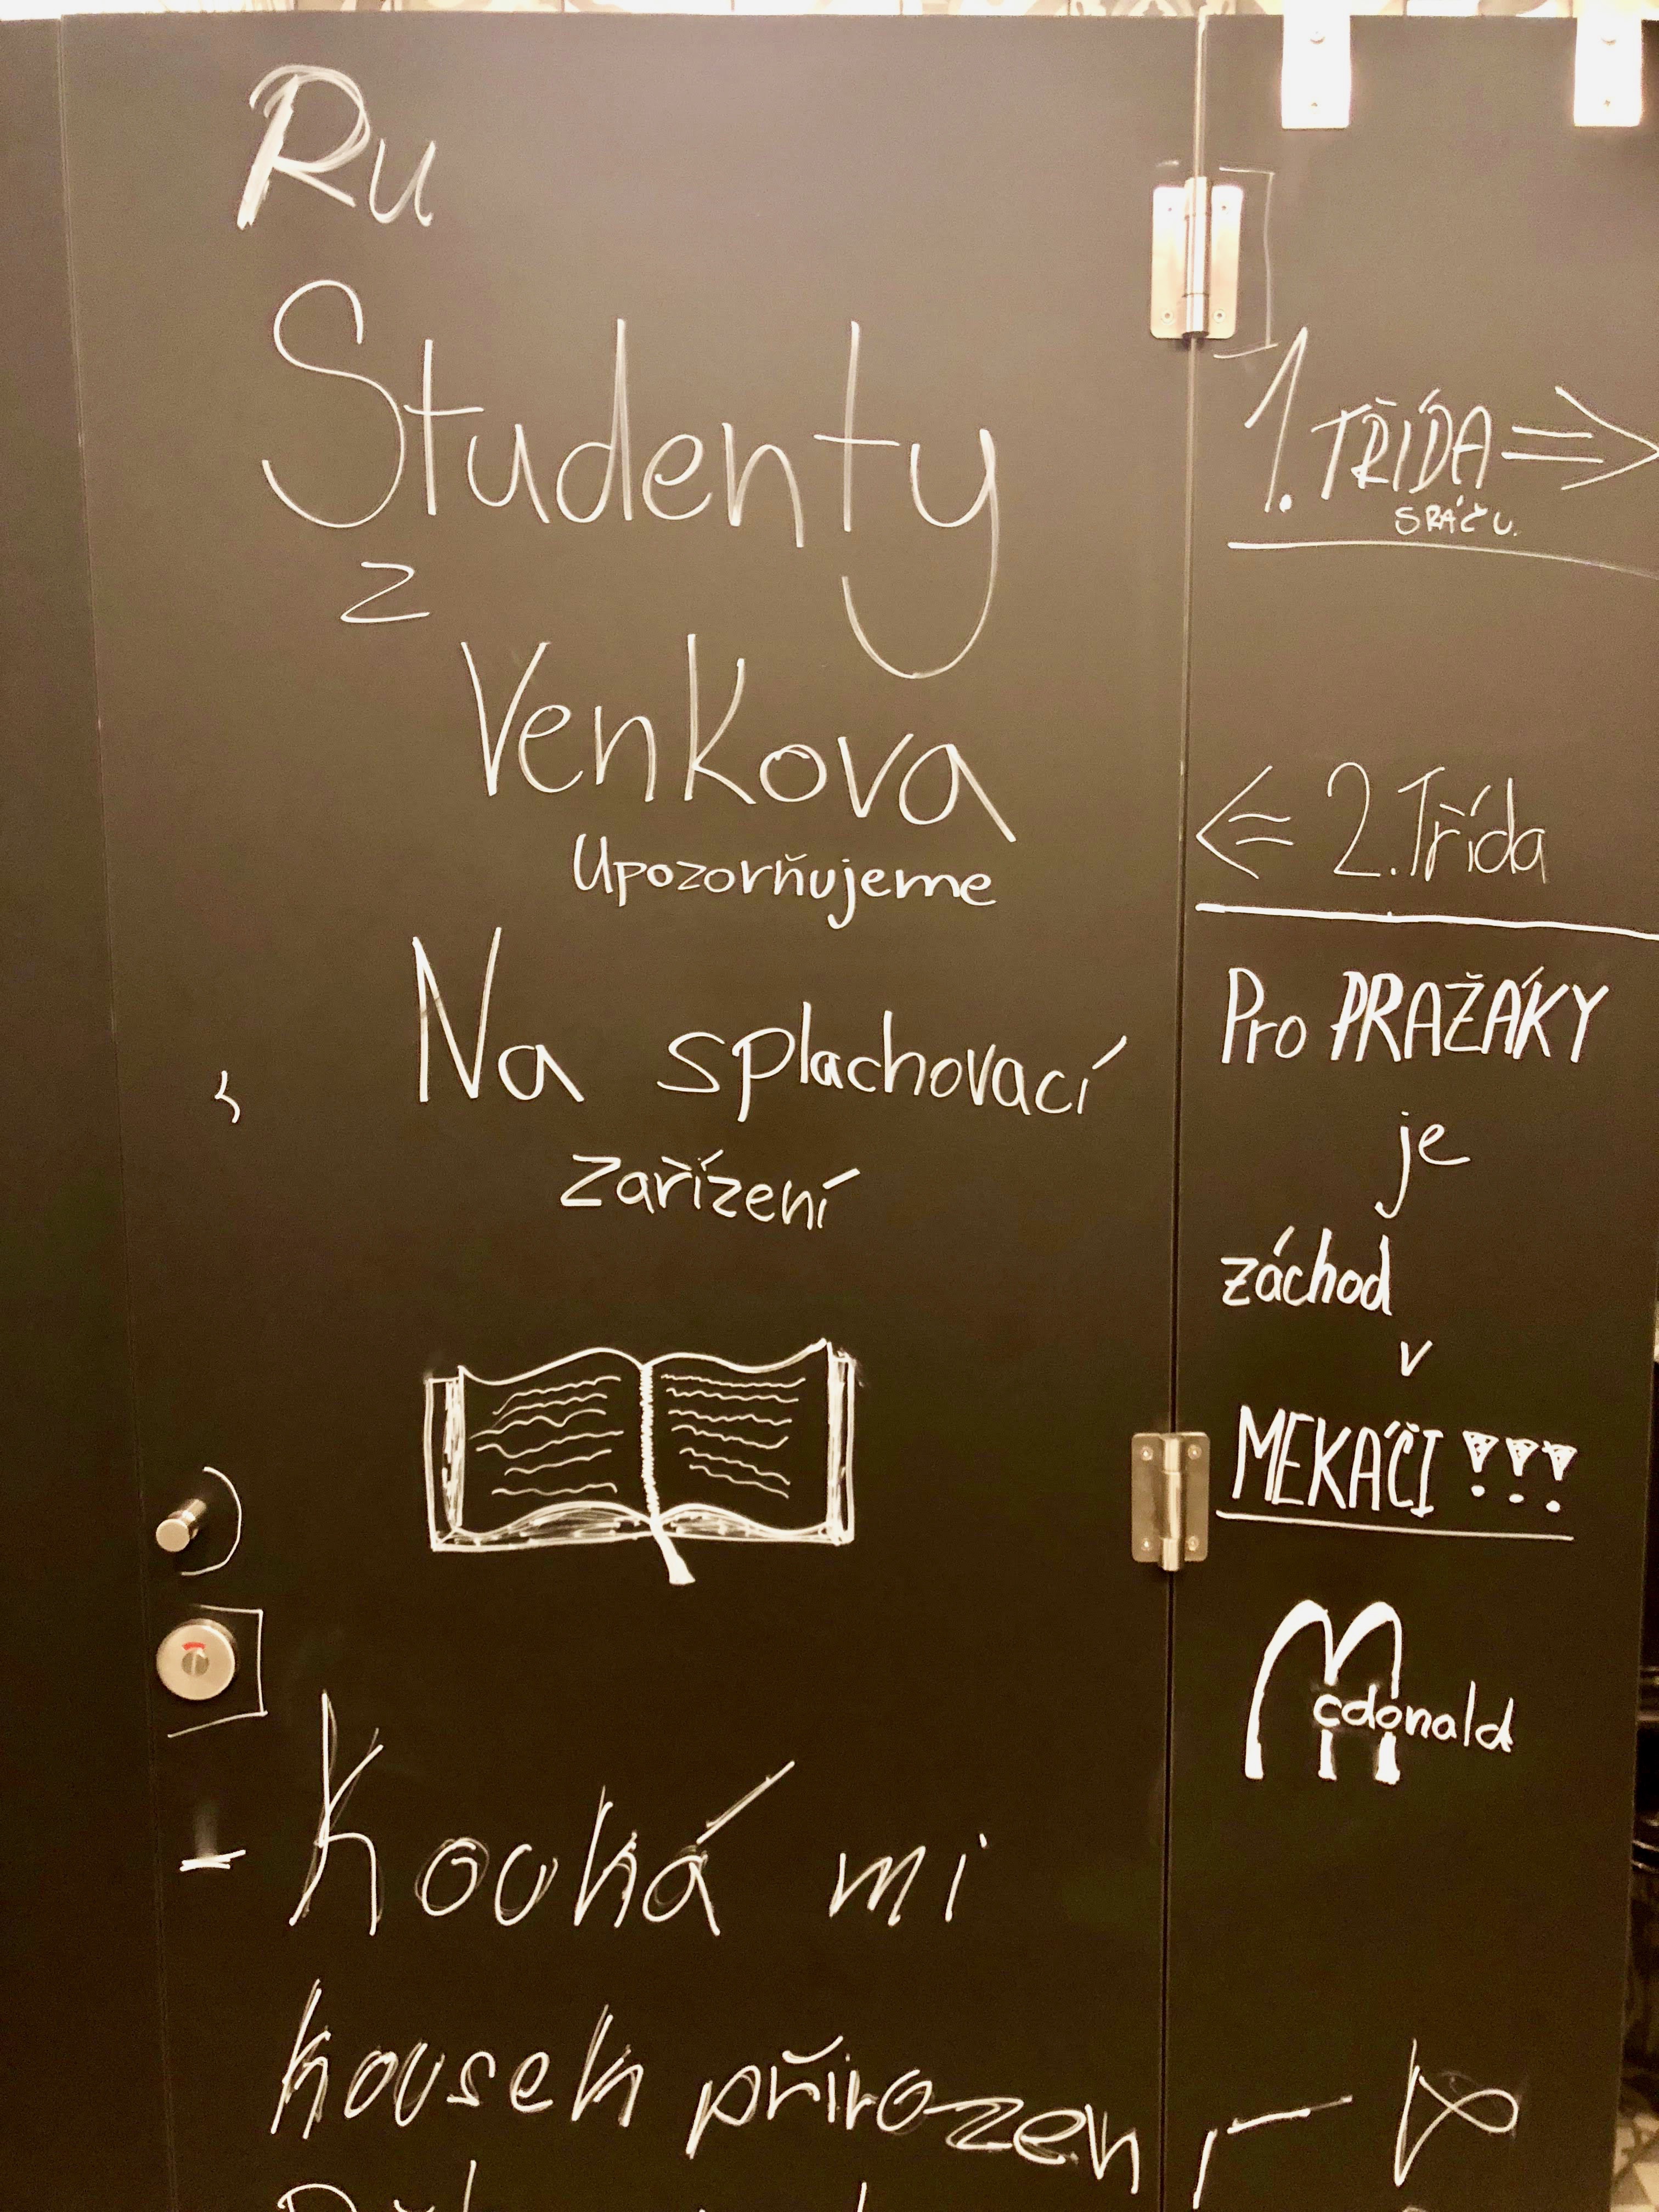 Ru
Studenty
z
Venkova
Upozorňujeme
Na splachovací
zařízení
- Kouká mi
kousek přirození
1. TŘÍDA ⇒
SRÁČŮ.
⇐ 2. Třída
Pro PRAŽÁKY
je
záchod
v
MEKÁČI !!!
Mcdonald